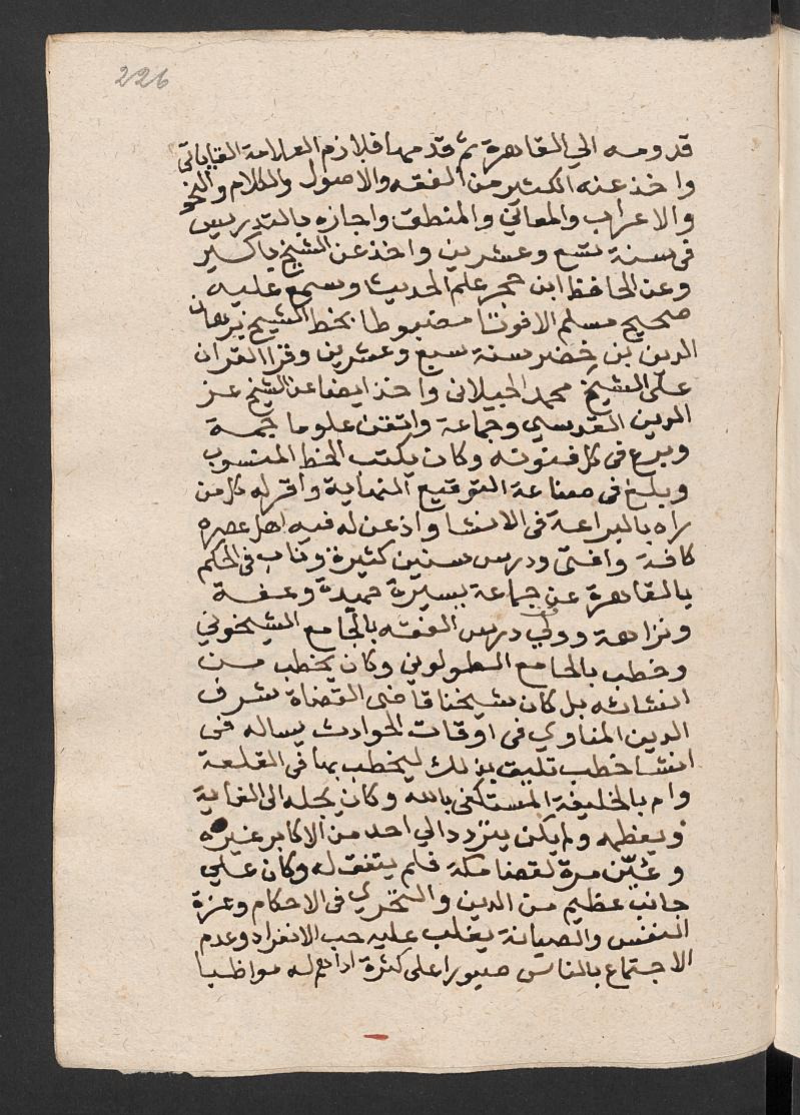 226
قدومه الي القاهرة ثم قدمها فلازم العلامة القاياتي
واخذ عنه الكثير من الفقه والاصول والكلام والنحو
والاعراب والمعاني والمنطق واجازه بالتدريس
في سنة تسع وعشرين واخذ عن الشيخ باكير
وعن الحافظ ابن حجر علم الحديث وسمع عليه
صحيح مسلم الافوتا مضبوطا بخط الشيخ برهان
الدين بن خضر سنة سبع وعشرين وقرا القران
على الشيخ محمد الجيلاني واخذ ايضا عن الشيخ عز
الدين القدسي وجماعة واتقن علوما جمة
وبرع في كل فنونه وكان يكتب الخط المنسوب
وبلغ في صناعة التوقيع النهاية واقر له كل من
راه بالبراعة في الانشا واذعن له فيه اهل عصره
كافة وافتى ودرس سنين كثيرة وناب في الحكم
بالقاهرة عن جماعة بسيرة حميدة وعفة
ونزاهة وولي درس الفقه بالجامع الشيخوني
وخطب بالجامع الطولوني وكان يخطب من
انشائه بل كان شيخنا قاضى القضاة شرف
الدين المناوي في اوقات الحوادث يساله في
انشا خطب تليق بذلك ليخطب بها في القلعة
وام بالخليفة المستكفى بالله وكان يجله الى الغاية
ويعظمه ولم يكن يتردد الي احد من الاكابر غيره
وعُيّن مرة لقضا مكة فلم يتفق له وكان علي
جانب عظيم من الدين والتحري في الاحكام وعزة
النفس والصيانة يغلب عليه حب الانفراد وعدم
الاجتماع بالناس صبورا على كثرة اداهم له مواظبا